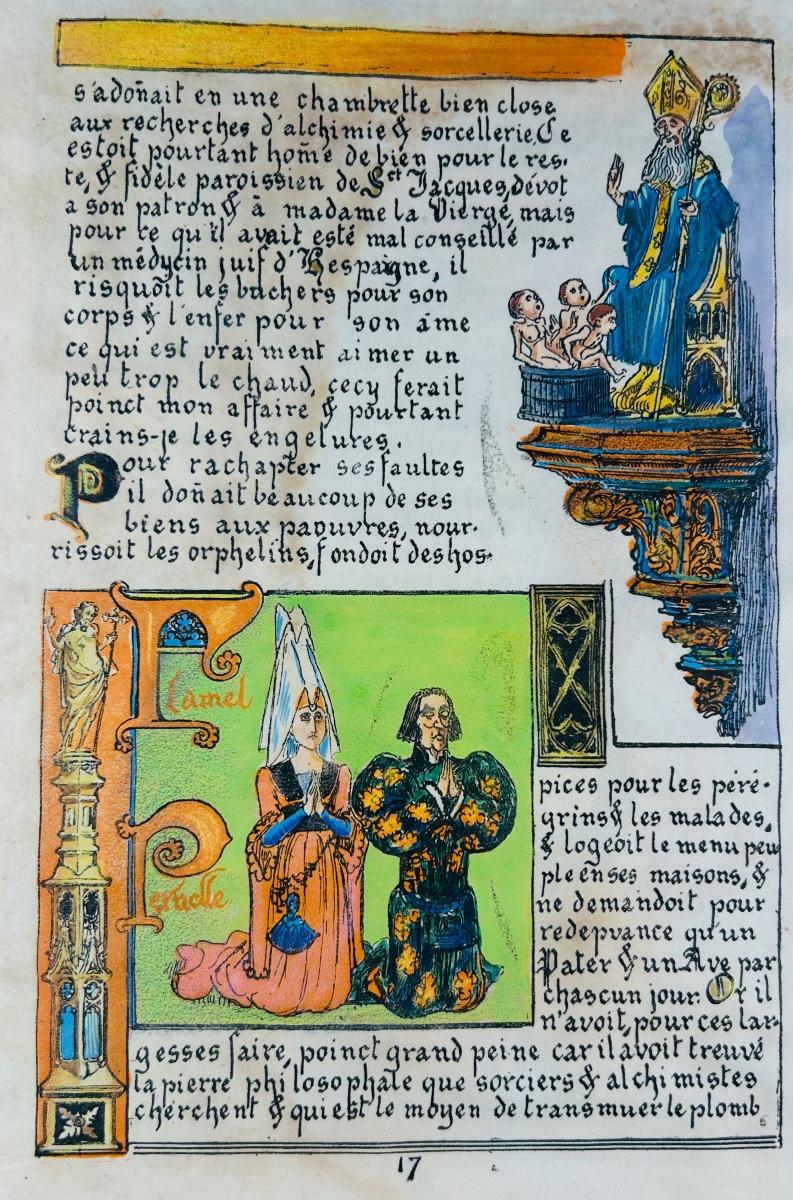 s'adoñait en une chambrette bien close
aux recherches d'alchimie & sorcellerie, Ce
estoit pourtant hom̃e de bien pour le res-
te, & fidèle paroissien de Sct Jacques, dévot
a son patron & à madame la Vierge, mais
pour ce qu'il avait esté mal conseillé par
un médycin juif d'Hespaigne, il
risquoit les buchers pour son
corps & l'enfer pour son âme
ce qui est vraiment aimer un
peu trop le chaud, cecy ferait
poinct mon affaire & pourtant
crains-je les engelures.
Pour rachapter ses faultes
il doñait beaucoup de ses
biens aux paouvres, nour-
rissoit les orphelins, fondoit des hos-
Flamel
Pernelle
pices pour les péré-
grins & les malades,
& logeoit le menu peu
ple en ses maisons, &
ne demandoit pour
redepvance qu'un
Pater & un Ave par
chascun jour. Or il
n'avoit, pour ces lar-
gesses faire, poinct grand peine car il avoit treuvé
la pierre philosophale que sorciers & alchimistes
cherchent & qui est le moyen de transmuer le plomb
17